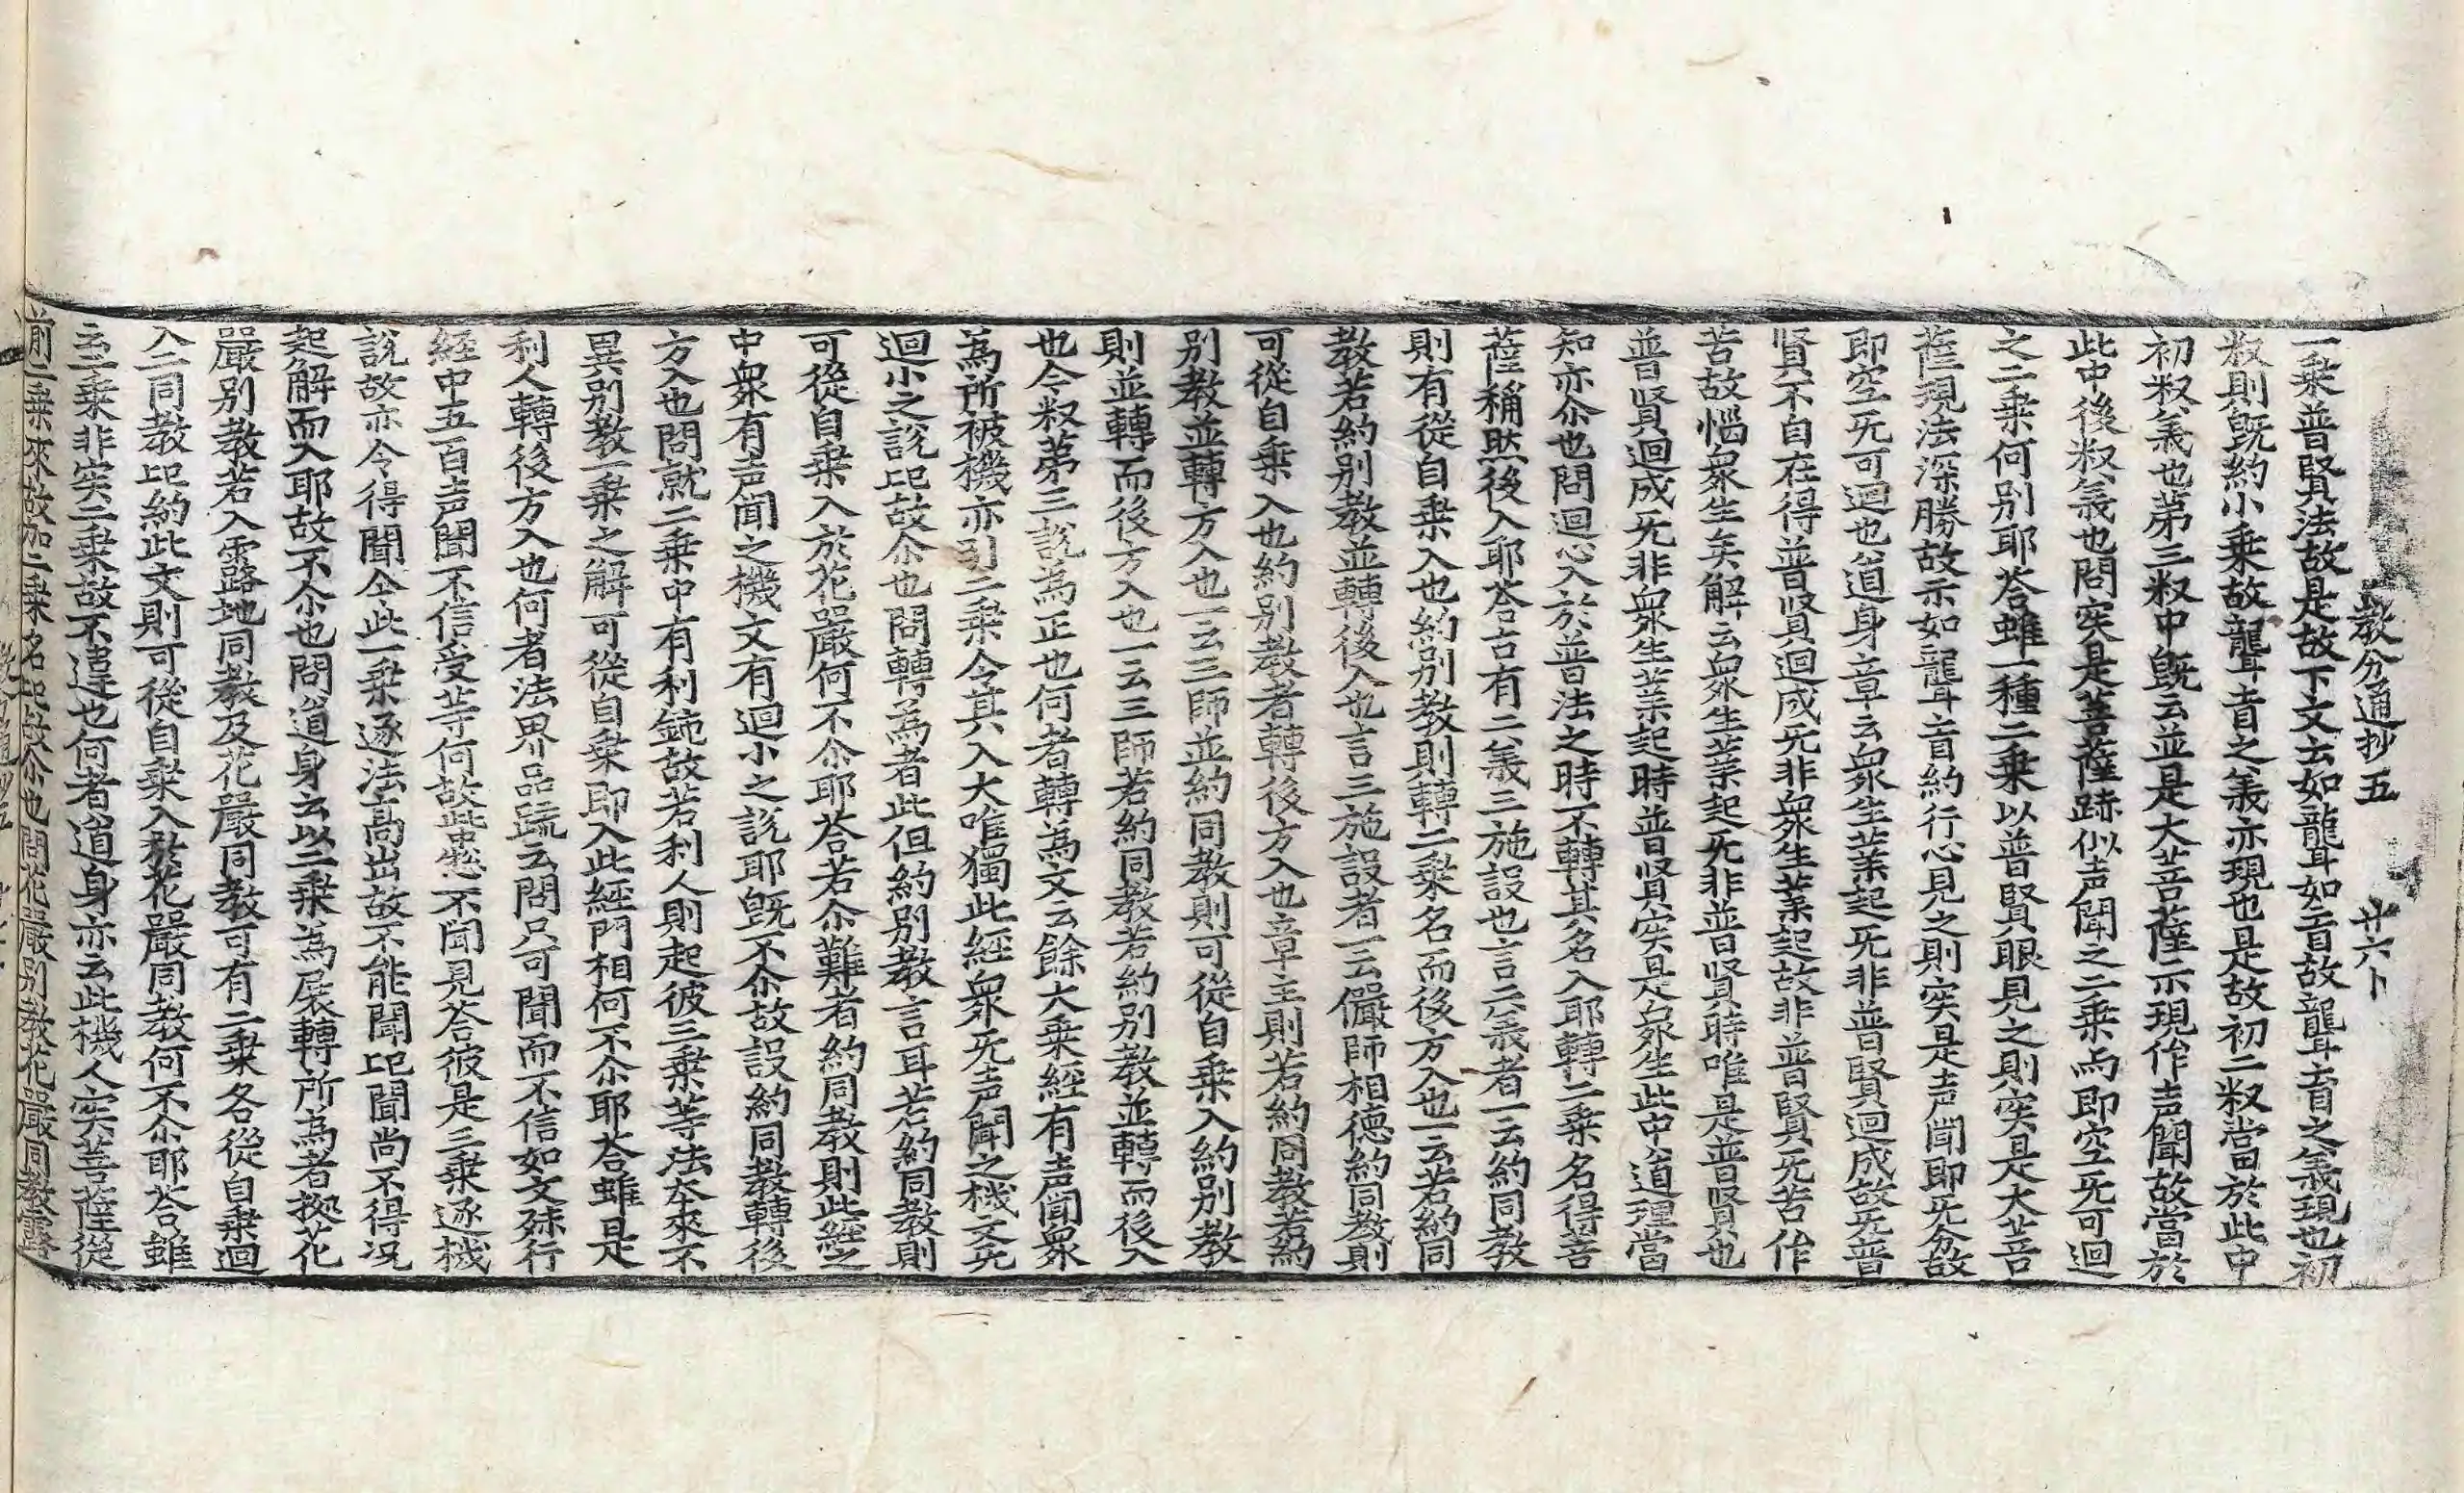 教分通抄五　廿六卜
一乗普賢法故是故下文云如聾如盲故聾盲之義現也初
叔則旣約小乗故聾盲之義亦現也是故初二叔當於此中
初叔義也第三叔中旣云並是大菩薩示現作声聞故當於
此中後叔義也問実是菩薩跡似声聞之二乗而即空旡可迴
之二乗何别耶荅雖一種二乗以普賢眼見之則実是大菩
薩現法深勝故示如聾盲約行心見之則実是声聞即旡分故
即空旡可迴也道身章云衆生業起旡非普賢迴成故旡普
賢不自在得普賢迴成旡非衆生業起故非普賢旡苦作
苦故惱衆生矣解云衆生業起旡非普賢時唯是普賢也
普賢迴成旡非衆生業起時普賢実是衆生此中道理當
知亦尒也問迴心入於普法之時不轉其名入耶轉二乗名得菩
薩稱然後入耶荅古有二義三施設也言二義者一云約同教
則有從自乗入也約别教則轉二乗名而後方入也一云若約同
教若約别教並轉後入也言三施設者一云儼師相德約同教則
可從自乗入也約别教者轉後方入也章主則若約同教若約
别教並轉方入也一云三師並約同教則可從自乗入約别教
則並轉而後方入也一云三師若約同教若約别教並轉而後入
也今叔第三說為正也何者轉為文云餘大乗經有声聞衆
為所被機亦引二乗令其入大唯獨此經衆旡声聞之機文旡
迴小之說㠯故尒也問轉為者此但約别教言耳若約同教則
可從自乗入於花嚴何不尒耶荅若尒難者約同教則此經之
中衆有声聞之機文有迴小之說耶旣不尒故設約同教轉後
方入也問就二乗中有利鈍故若利人則起彼三乗等法夲來不
異别教一乗之解可從自乗即入此經門相何不尒耶荅雖是
利人轉後方入也何者法界品䟽云問只可聞而不信如文殊行
經中五百声聞不信受等何故此中㤀不聞見荅彼是三乗逐機
說故亦令得聞仝此一乗逐法高出故不能聞㠯聞尚不得况
起解而入耶故不尒也問道身云以二乗為展轉所為者㨿花
嚴别教若入露路地同教及花嚴同教可有二乗各從自乗迴
入二同教㠯約此文則可從自乗入於花嚴同教何不尒耶荅雖
云二乗非実二乗故不違也何者道身亦云此機人実菩薩從
前二乗來故加二乗名㠯故尒也問花嚴别教花嚴同教露